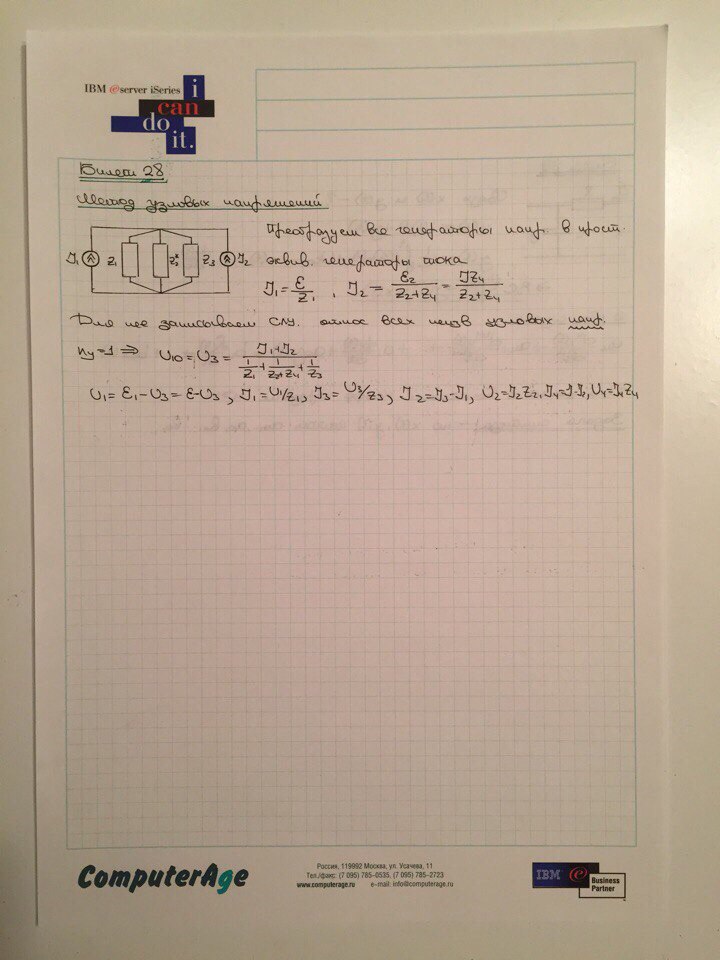 IBM e server iSeries i
can
do
it.
Билет 28
Метод узловых напряжений
Преобразуем все генераторы напр. в прост.
J₁ Z₁ Z₂* Z₃ J₂
эквив. генераторы тока
J₁ = ℰ/Z₁ , J₂ = ℰ₂/(Z₂+Z₄) = JZ₄/(Z₂+Z₄)
Для нее записываем СЛУ. относ всех незав узловых напр.
nу=1 ⇒ U₁₀ = U₃ = (J₁+J₂)/(1/Z₁ + 1/(Z₂+Z₄) + 1/Z₃)
U₁ = ℰ₁-U₃ = ℰ-U₃ , J₁ = U₁/Z₁ , J₃ = U₃/Z₃ , J₂ = J₃-J₁ , U₂=J₂Z₂, J₄=J-J₂, U₄=J₄Z₄
ComputerAge
Россия, 119992 Москва, ул. Усачева, 11
Тел./факс: (7 095) 785-0535, (7 095) 785-2723
www.computerage.ru e-mail: info@computerage.ru
IBM e Business
Partner